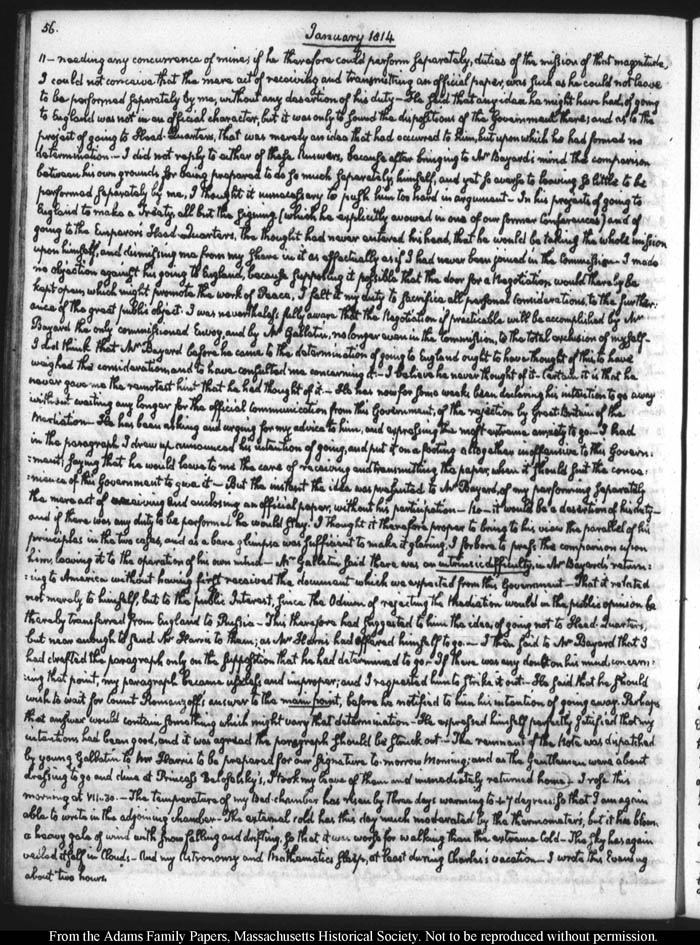 56.
January 1814
11 — needing any concurrence of mine; if he therefore could perform separately, duties of the mission of that magnitude,
I could not conceive that the mere act of receiving and transmitting an official paper, was such as he could not leave
to be performed separately by me, without any desertion of his duty — He said that any idea he might have had, of going
to England was not in an official character, but it was only to sound the dispositions of the Government there; and as to the
project of going to Head-Quarters, that was merely an idea that had occurred to him, but upon which he had formed no
determination — I did not reply to either of these answers, because after bringing to Mr Bayard's mind the comparison
between his own grounds for being prepared to do so much separately himself, and yet so averse to leaving so little to be
performed separately by me, I thought it unnecessary to push him too hard in argument — In his projects of going to
England to make a Treaty, all but the signing (which he explicitly avowed in one of our former conferences) and of
going to the Emperor's Head-Quarters, the thought had never entered his head, that he would be taking the whole mission
upon himself, and dismissing me from my share in it as effectually as if I had never been joined in the Commission — I made
no objection against his going to England, because supposing it possible that the door for a Negotiation would thereby be
kept open, which might promote the work of Peace, I felt it my duty to sacrifice all personal considerations, to the further-
ance of the great public object. I was nevertheless fully aware that the Negotiation if practicable will be accomplished by Mr
Bayard the only commissioned Envoy, and by Mr Gallatin, no longer even in the Commission, to the total exclusion of myself —
I did think that Mr Bayard before he came to the determination of going to England ought to have thought of this, to have
weighed this consideration, and to have consulted me concerning it — I believe he never thought of it — Certain it is that he
never gave me the remotest hint that he had thought of it — He has now for some weeks been declaring his intention to go away
without waiting any longer for the official communication from this Government, of the rejection by Great Britain of the
Mediation — He has been asking and urging for my advice to him, and expressing the most extreme anxiety to go — I had
in the paragraph I drew up, announced his intention of going, and put it on a footing altogether inoffensive to this Govern:
:ment, saying that he would leave to me the care of receiving and transmitting the paper, when it should suit the conve:
:nience of this Government to give it — But the instant the idea was presented to Mr Bayard, of my performing separately
the mere act of receiving and enclosing an official paper, without his participation — No — it would be a desertion of his duty —
and if there was any duty to be performed he would stay. I thought it therefore proper to bring to his view the parallel of his
principles in the two cases, and as a bare glimpse was sufficient to make it glaring, I forbore to press the comparison upon
him, leaving it to the operation of his own mind — Mr Gallatin said there was an intrinsic difficulty, in Mr Bayard's return:
:ing to America without having first received the document which we expected from this Government — That it related
not merely to himself, but to the public Interest, since the Odium of rejecting the Mediation would in the public opinion be
thereby transferred from England to Russia — This therefore had suggested to him the idea, of going not to Head-Quarters,
but near enough to send Mr Harris to them; as Mr Harris had offered himself to go — I then said to Mr Bayard that I
had drafted the paragraph only on the supposition that he had determined to go — If there was any doubt on his mind, concern:
:ing that point, my paragraph became useless and improper; and I requested him to strike it out — He said that he should
wish to wait for Count Romanzoff's answer to the main point, before he notified to him his intention of going away. Perhaps
that answer would contain something which might vary that determination — He expressed himself perfectly satisfied that my
intentions had been good, and it was agreed the paragraph should be struck out — The remnant of the Note was dispatched
by young Gallatin to Mr Harris to be prepared for our signature to-morrow Morning; and as the Gentlemen were about
dressing to go and dine at Princess Beloselsky's, I took my leave of them and immediately returned home — I rose this
morning at VII-30. — The temperature of my bed-chamber has risen by three days warming to +7 degrees: so that I am again
able to write in the adjoining chamber — The external cold has this day much moderated by the thermometers, but it has blown
a heavy gale of wind with snow falling and drifting, so that it was worse for walking than the extreme cold — The sky has again
veiled itself in Clouds — And my Astronomy and Mathematics sleep, at least during Charles's vacation — I wrote this Evening
about two hours.
From the Adams Family Papers, Massachusetts Historical Society. Not to be reproduced without permission.